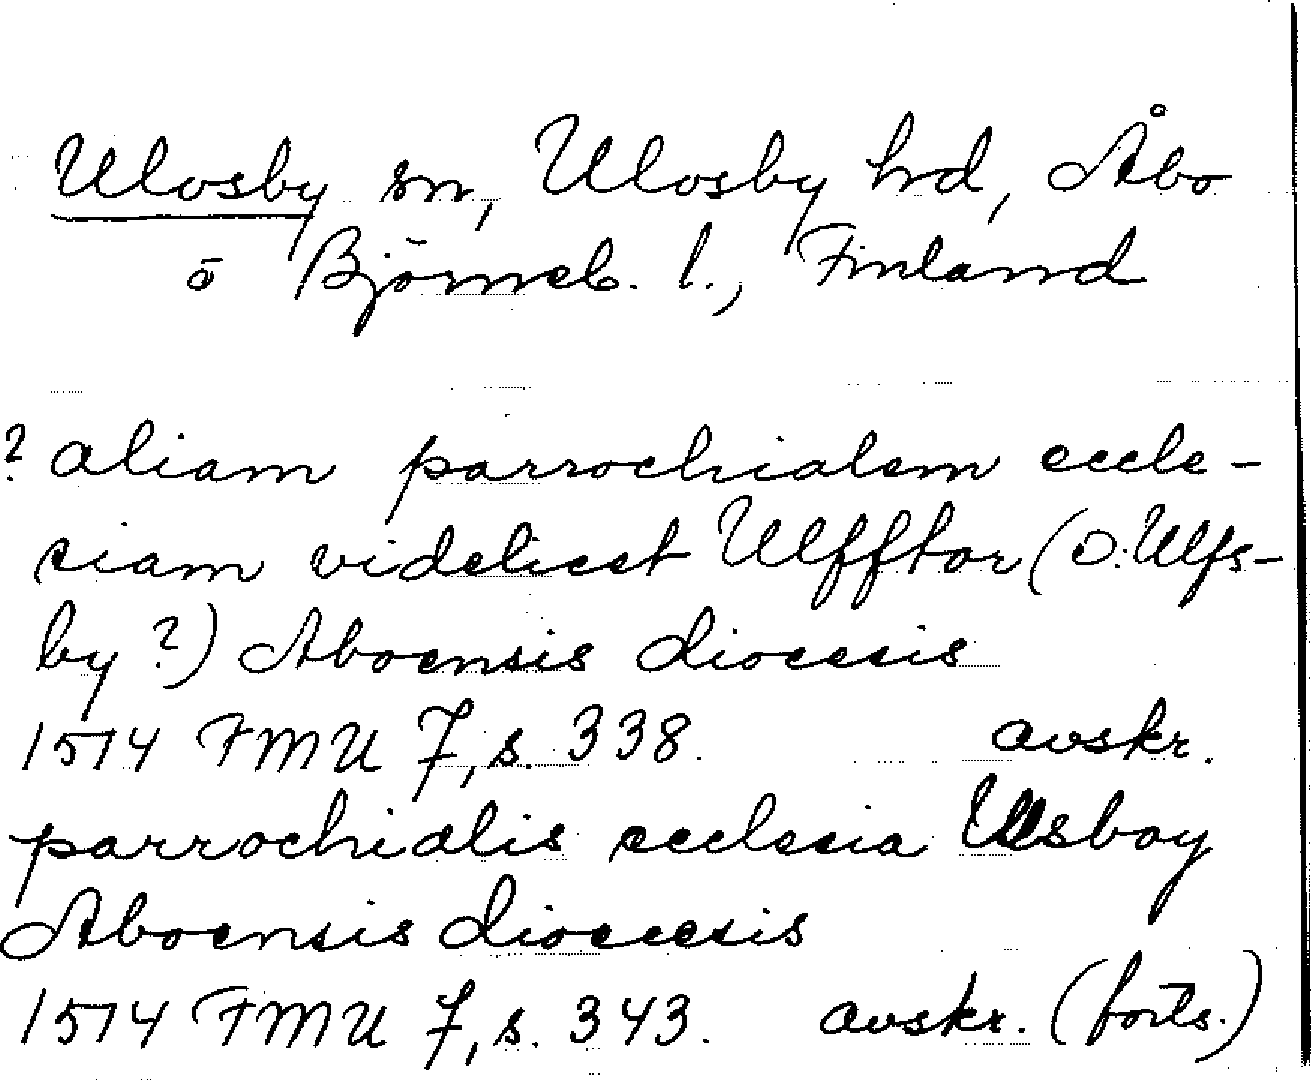 Ulvsby sn, Ulvsby hrd, Åbo
o Björneb. l., Finland
? aliam parrochialem eccle-
siam videlicet Ulfftor (ɔ: Ulfs-
by ?) Aboensis diocesis
1514 FMU 7, s. 338. avskr.
parrochialis ecclesia Ulsboy
Aboensis dioecesis
1514 FMU 7, s. 343. avskr. (forts.)